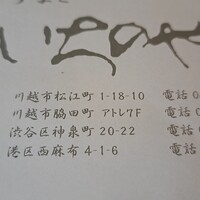 川越市松江町 1-18-10 電話 0
川越市脇田町 アトレ7F 電話 0
渋谷区神泉町 20-22 電話
港区西麻布 4-1-6 電話